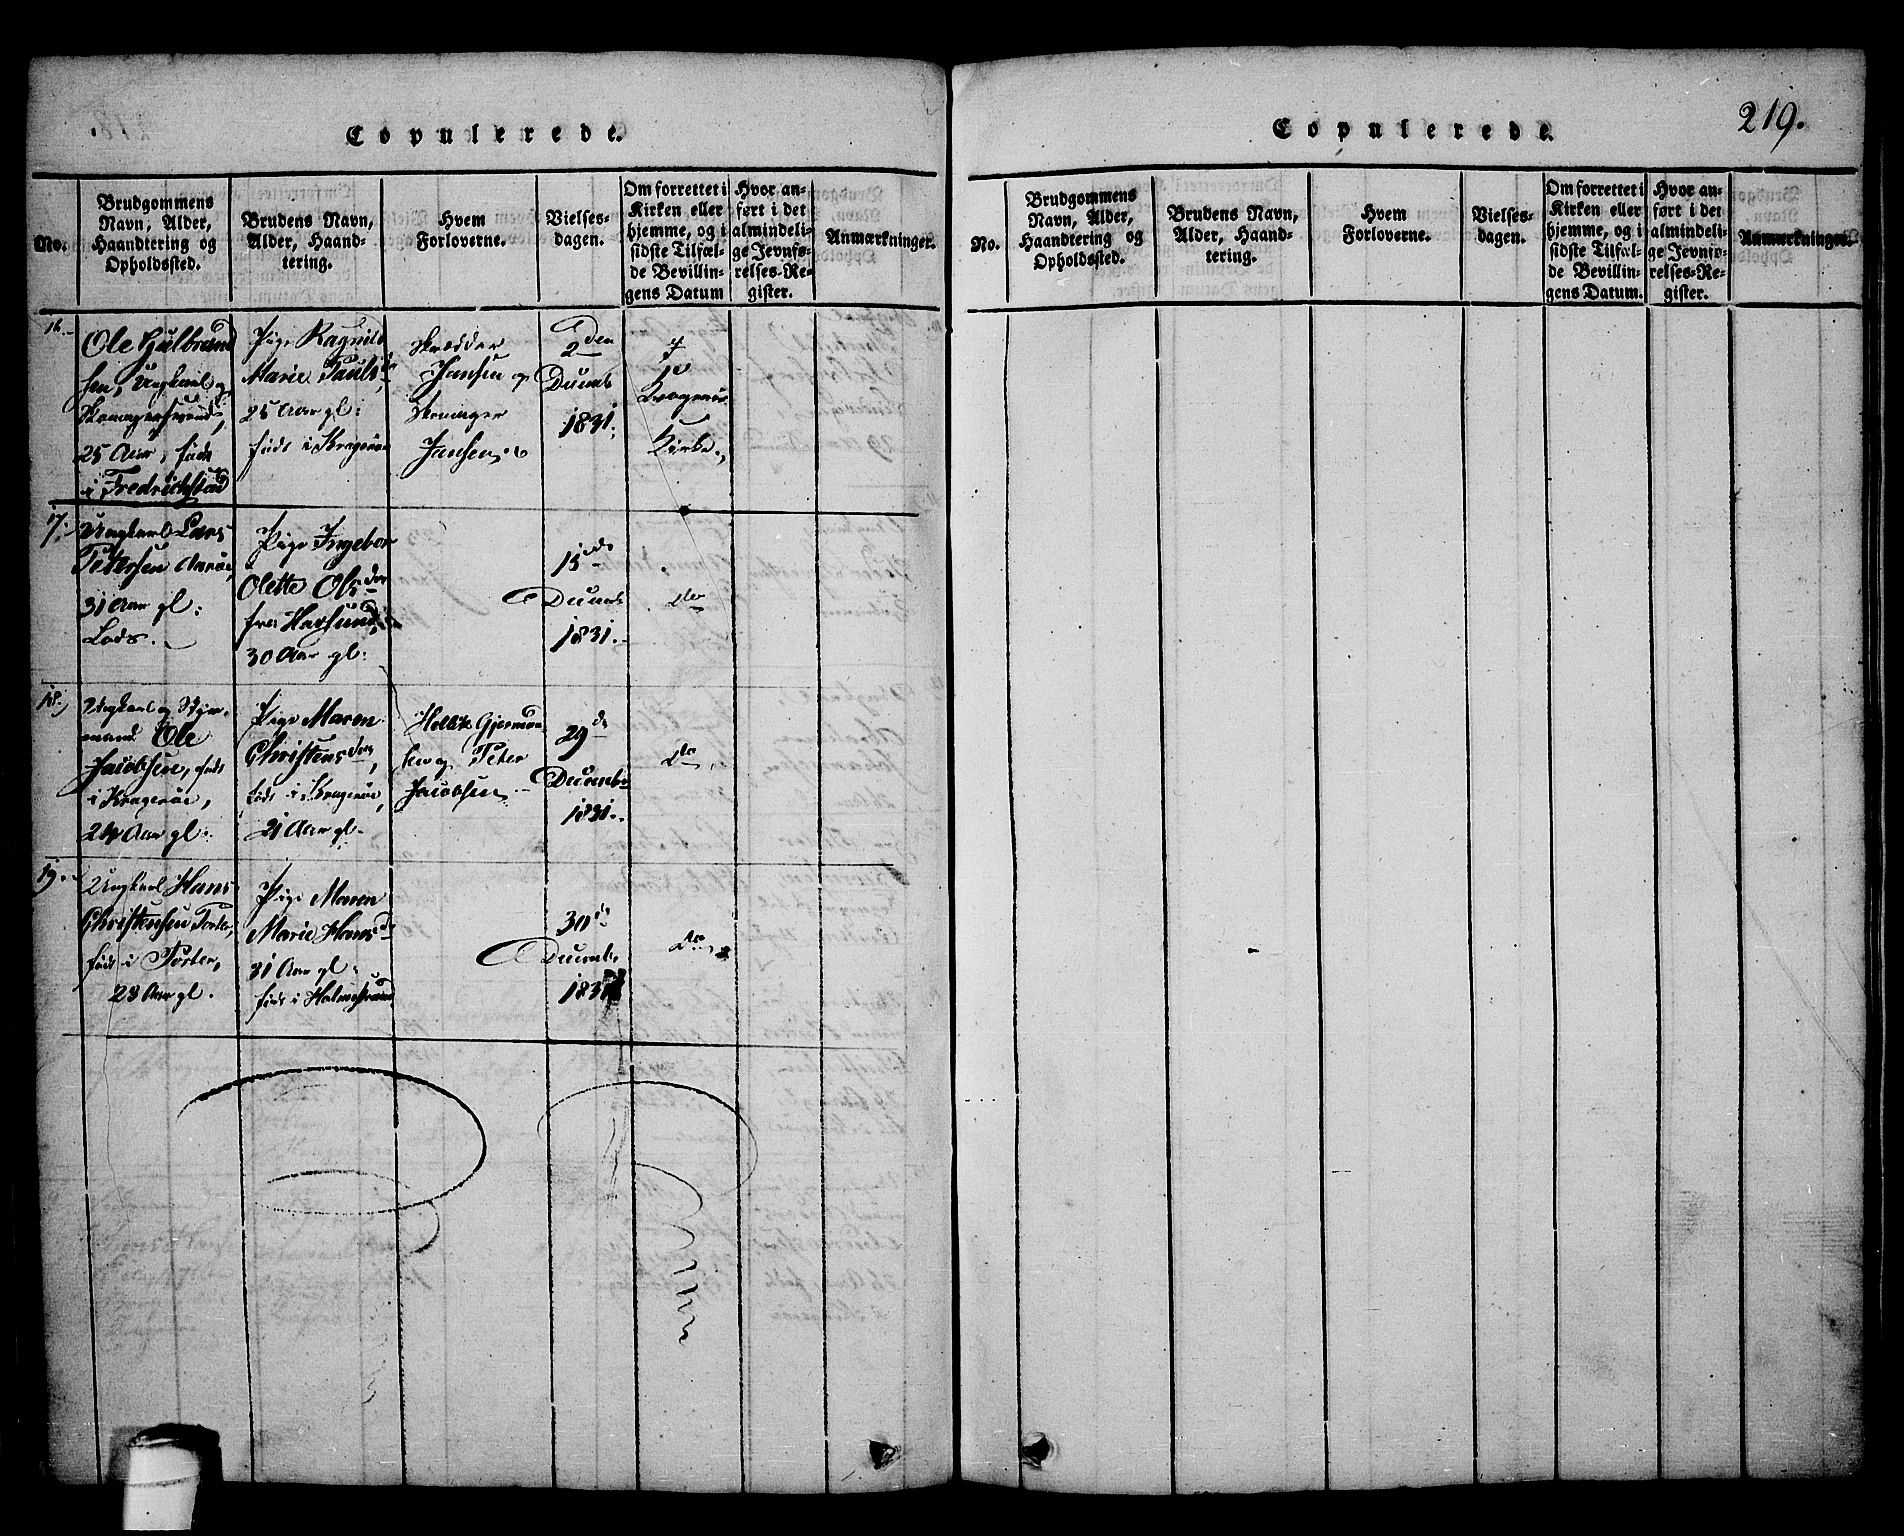 Copulerede.
No.
Brudgommens
Navn, Alder,
Haandtering og
Opholdssted.
Brudens Navn,
Alder, Haand-
tering.
Hvem
Forloverne.
Vielses-
dagen.
Om forrettet i
Kirken eller
hjemme, og i
sidste Tilfæl-
de Bevillin-
gens Datum
Hvor an-
ført i det
almindeli-
ge Jevnfø-
relses-Re-
gister.
Anmærkninger.
16.
Ole Gulbrand
sen, Ungkarl og
25 Aar, født
i Fredrichstad
Pige Ragnild
Marie Pauls
25 Aar gl:
født i Kragerøe
Skredder
Jansen og
Jansen
2den
Decemb
1831.
I
Kragerøe
Kirke.
17.
Ungkarl Lars
Petersen Aarøe,
31 Aar gl:
Lods.
Pige Ingebor
Olette Olsdtr
fra Havsund,
30 Aar gl:
15de
Decemb
1831.
do
18.
Ungkarl og Styr-
mand Ole
Jacobsen, født
i Kragerøe,
24 Aar gl:
Pige Maren
Christensdtr,
født i Kragerøe,
21 Aar gl.
Gjermun
sen og Peter
Jacobsen
29de
Decembr
1831.
do
19.
Ungkarl Hans
Christensen Forter,
født i Forter,
23 Aar gl.
Pige Maren
Marie Hansd
31 Aar gl.
født i Holmestrand
30de
Decemb.
1831
do
Copulerede.
219.
No.
Brudgommens
Navn, Alder,
Haandtering og
Opholdssted.
Brudens Navn,
Alder, Haand-
tering.
Hvem
Forloverne.
Vielses-
dagen.
Om forrettet i
Kirken eller
hjemme, og i
sidste Tilfæl-
de Bevillin-
gens Datum.
Hvor an-
ført i det
almindeli-
ge Jevnfø-
relses-Re-
gister.
Anmærkninger.